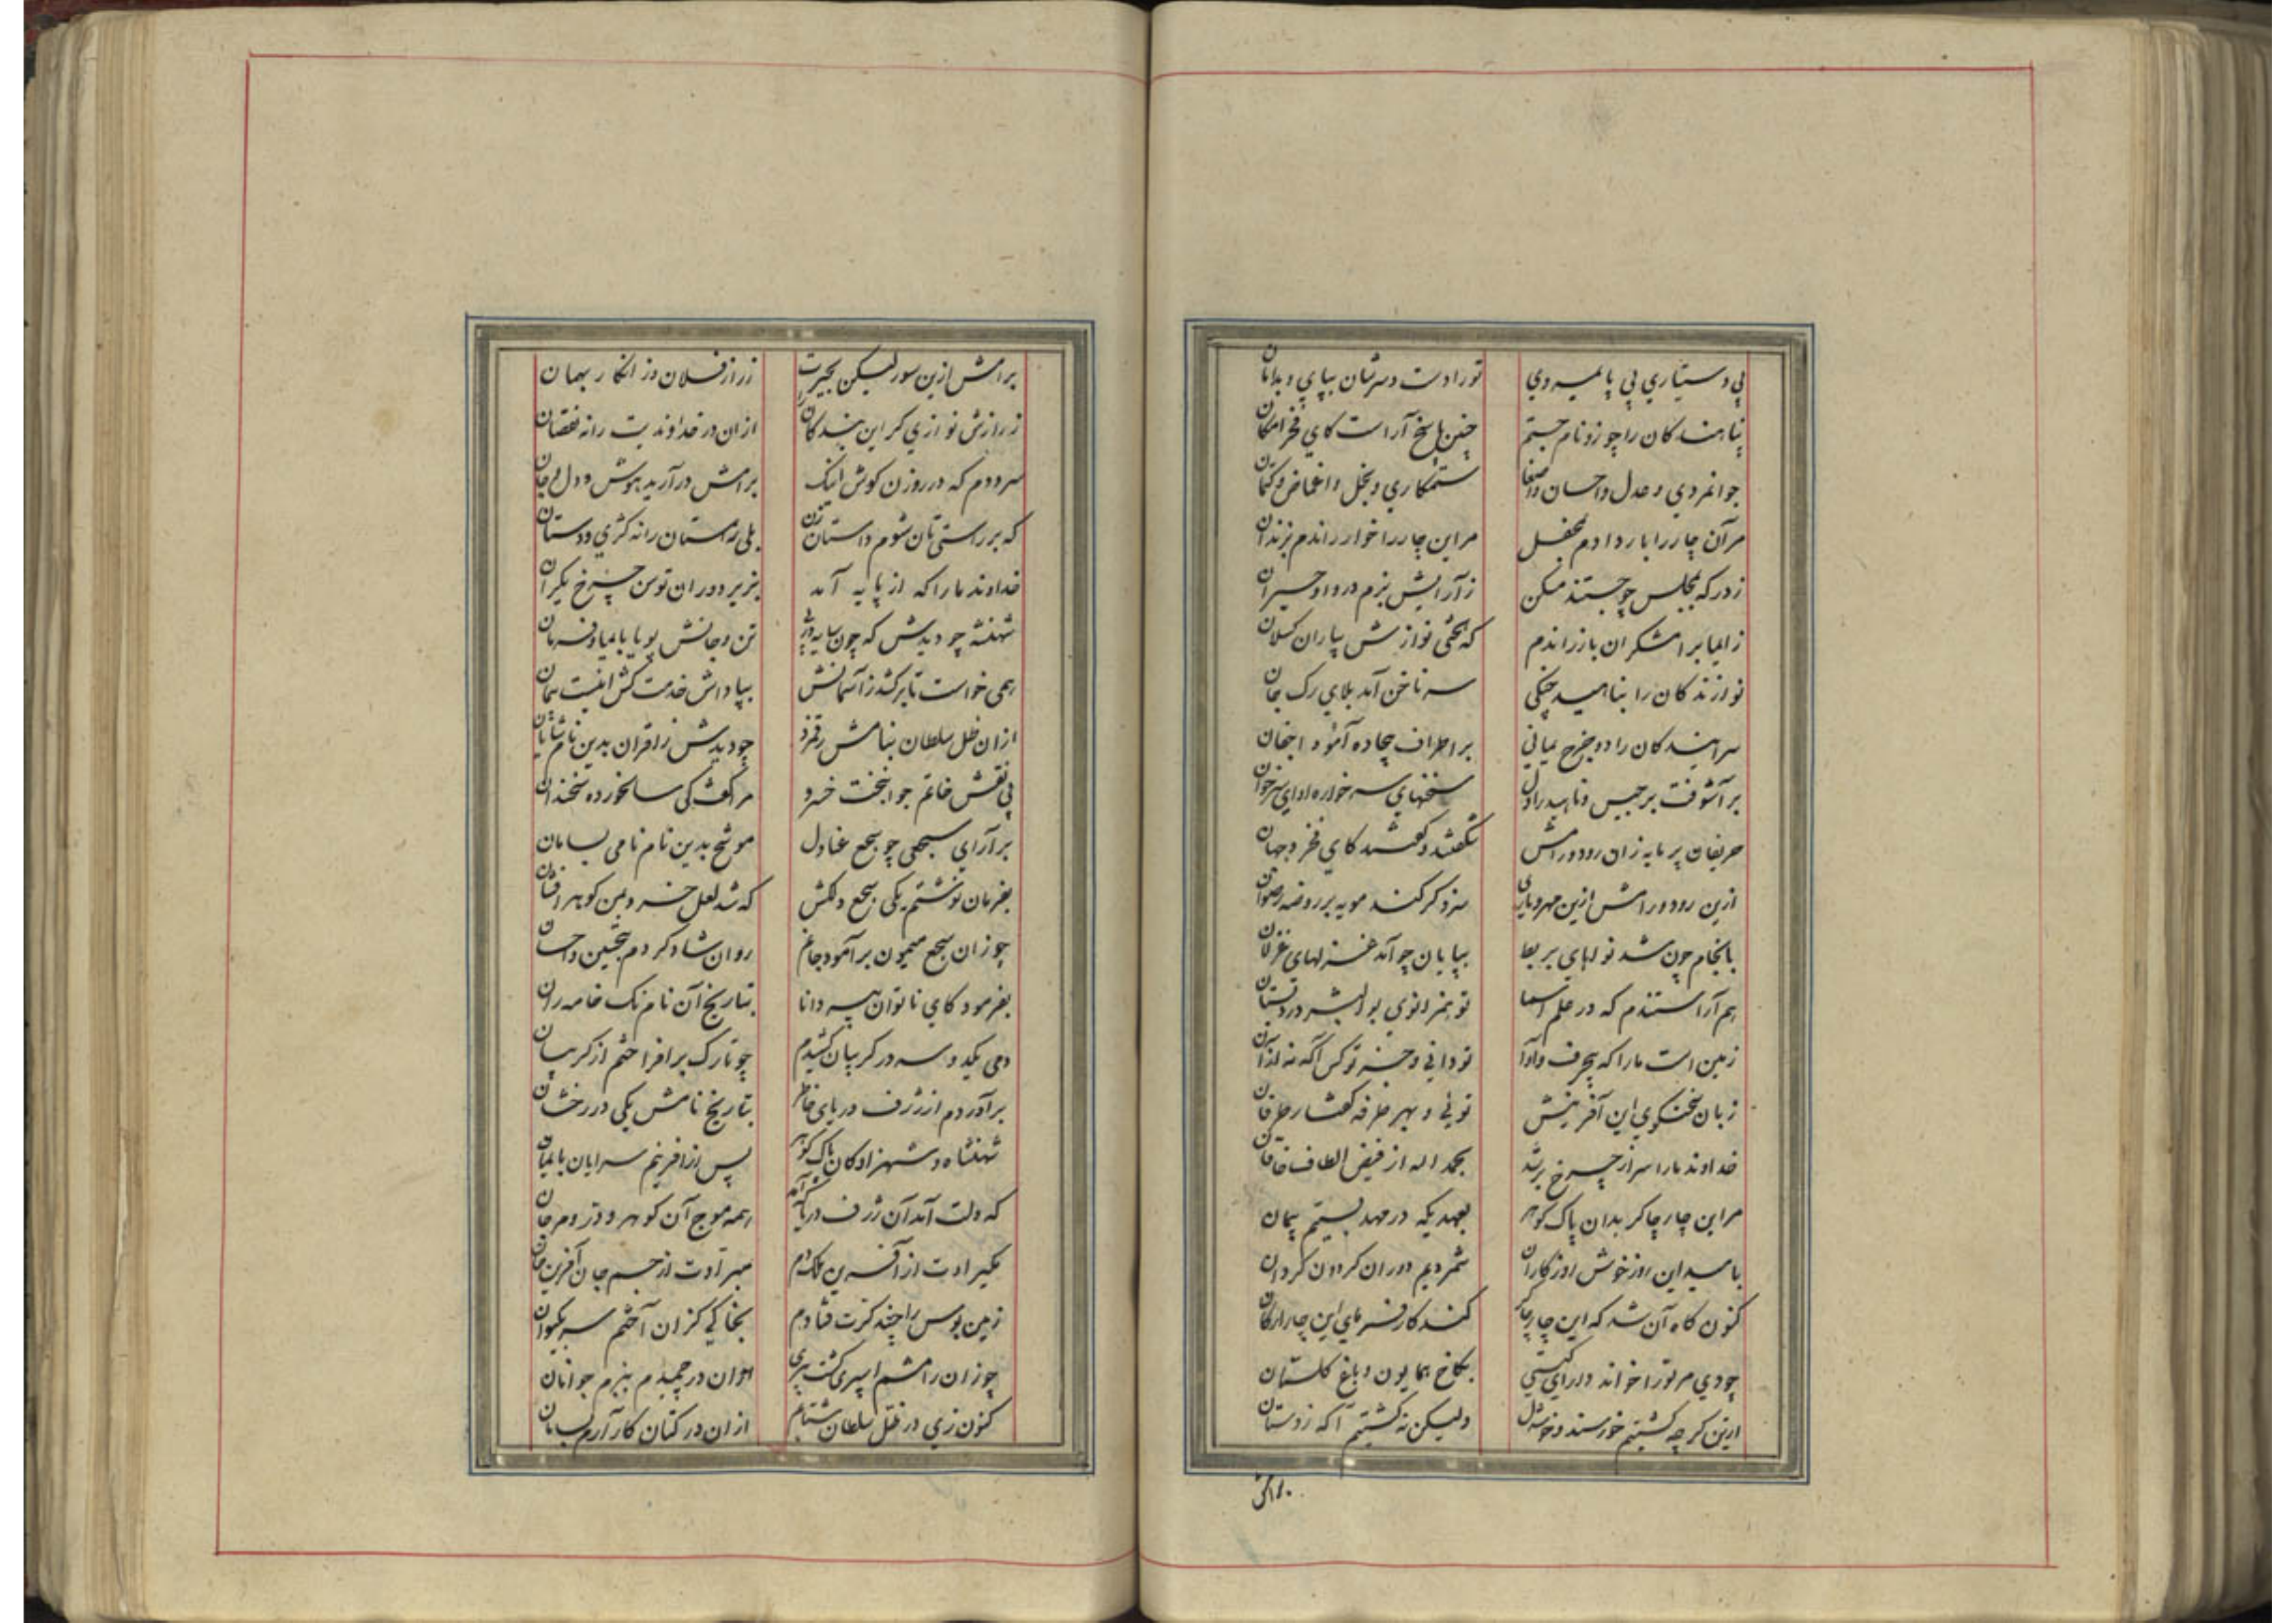 پی دستیاری پی پایمردی تو رادست و سرشان بپای و بدامان
پناهندکان را چو زو نام جستم چنین پاسخ آراست کای فخر امکان
جوانمردی و عدل و احسان و انصاف ستمکاری و بخل و اغماض و کتمان
مر آن چار را بار دادم بمحفل مر این چار را خوار راندم بزندان
ز درکه بمجلس چو جستند مسکن ز آرایش بزم در وا و حیران
ز ایما برامشکران باز راندم که بخشی نوازش بیاران کسلان
نوازندکان را بناهید چنکی سر ناخن آمد بلای رک جان
سرایندکان را دو جزع یمانی بر اطراف بیجاده آمود اجفان
بر آشوفت برجیس و ناهید را دل سخنهای سر خواره ادای سر خوان
حریفان پر مایه زان رود و رامش شکفتند و کفتند کای فخر دو جهان
ازین رود و رامش ازین مهر و یاری سزد کر کند مویه بر روضه رضوان
بانجام چون شد نواهای بربط بپایان چو آمد غزلهای غزلان
هم آراستندم که در علم اسما تو همزانوی بوالبشر در دبستان
زمین است ما را که بیحرف و آوا تو دانی و جز تو کس آکه نه از آن
زبان سخنکوی این آفرینش توئی و بهر طرفه کفتار طرفان
خداوند ما را سر از چرخ بر شد بحمد اله از فیض الطاف خاقان
مر این چار چاکر بدان پاک کوهر بعهدیکه در مهد بستیم پیمان
بامید این روز خوش روزکاران شمردیم دوران کردون کردان
کنون کاه آن شد که این چار چاکر کند کارفرمای این چار ارکان
چو دی مر تو را خواند دارای کیتی بکاخ همایون و باغ کلستان
ازین کر چه کشتیم خورسند و خوشدل ولیکن نه کشتیم آکه ز دستان
برامش
برامش ازین سور لیکن بحیرت ز راز فلان وز انکار بهمان
ز رازش نوازی کر این بندکان را از آن در خداوندیت را نه نقصان
سرودم که در روزن کوش اینک برامش در آرید هوش و دل و جان
که بر راستی تان شوم داستان زن بلی راستان را نه کژی و دستان
خداوند ما را که از پایه آمد بزیر دوران توسن چرخ یکران
شهنشه چو دیدش که چون سایه در پی تن و جانش پویا بایما و فرمان
همی خواست تا بر کشد ز آسمانش بپاداش خدمت کش اینست سامان
از آن ظل سلطان بنامش رقم زد چو دیدش ز اقران بدین نام شایان
پی نقش خاتم جوانبخت خسرو مرا کفت کی سالخورده سخندان
بر آرای سجعی چو سجع عنادل موشح بدین نام نامی بسامان
بفرمان نوشتم یکی سجع دلکش که شد لعل خسرو بمن کوهر افشان
چو زان سجع میمون بر آمود جانم روان شاد کردم بتحسین و احسان
بفرمود کای ناتوان پیر دانا بتاریخ آن نام نک خامه را ران
دمی یکدو سر در کریبان کشیدم چو تارک بر افراختم از کریبان
بر آوردم از ژرف دریای خاطر بتاریخ نامش یکی در رخشان
شهنشاه و شهزادکان پاک کوهر پس از آفرینم سرایان بایمان
که دلت آمد آن ژرف دریا که آمد همه موج آن کوهر و در و مرجان
بکیرادت از آفرین ملک دم مبرادت از جسم جان آفرین جان
زمین بوس را چند کرت فتادم بخاکی کزان آختم سر بکیوان
چو زان رامشم اسپری کشت پیری از آن در چمیدم ببزم جوانان
کنون زی در ظل سلطان شتابم از آن در کتان کار آرم بسامان